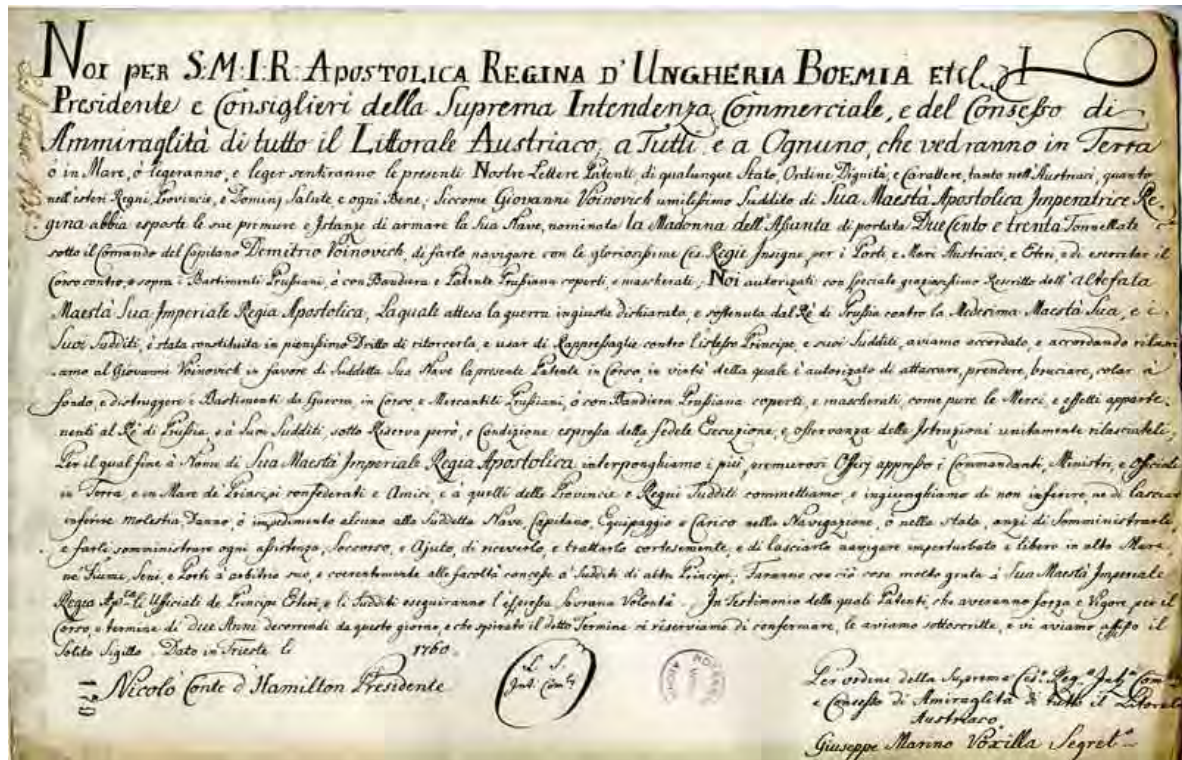 NOI PER S:M:I:R: APOSTOLICA REGINA D' UNGHERIA BOEMIA etc
Presidente e Consiglieri della Suprema Intendenza Commerciale, e del Consesso di
Ammiraglità di tutto il Littorale Austriaco, a Tutti, e a Ognuno, che vedranno in Terra
ò in Mare, ò legeranno, e leger sentiranno le presenti Nostre Lettere Patenti, di qualunque Stato, Ordine Dignità, e Carattere, tanto nell'Austriaci, quanto
nell'esteri Regni, Provincie, e Dominj Salute e ogni Bene; Siccome Giovanni Voinovich umilissimo Suddito di Sua Maestà Apostolica Imperatrice Re-
gina abbia esposte le sue premure e Istanze di armare la Sua Nave, nominata la Madonna dell'Assunta di portata Due Cento e trenta Tonnellate
sotto il Comando del Capitano Demetrio Voinovich di farlo navigare con le gloriosissime Ces. Regie Insegne per i Porti e Mari Austriaci, e Esteri, e di esercitar il
Corso contro, e sopra i Bastimenti Prussiani, ò con Bandiera e Patente Prussiana coperti, e mascherati; Noi autorizati con speciale graziosissimo Rescritto dell' altefata
Maestà Sua Imperiale Regia Apostolica, La quali attesa la guerra ingiusta dichiarata, e sostenuta dal Rè di Prussia contro la Medesima Maestà Sua, e i
Suoi Sudditi, è stata constituita in pienissimo Dritto di ritorcerla, e usar di Rappressaglie contro l'istesso Principe, e suoi Sudditi, aviamo accordato, e accordando rilasci
-amo al Giovanni Voinovich in favore di Suddetta Sua Nave la presente Patente in Corso, in virtù della quale è autorizato di attaccare, prendere, bruciare, colar à
fondo, e distruggere i Bastimenti da Guerra, in Corso, e Mercantili Prussiani, ò con Bandiera Prussiana coperti, e mascherati, come pure le Merci, e effetti apparte-
nenti al Rè di Prussia, e à Suoi Sudditi, sotto Riserva però, e Condizione espressa della fedele Esecuzione, e osservanza delle Istruzioni unitamente rilasciateli;
Per il qual fine à Nome di Sua Maestà Imperiale Regia Apostolica interponghiamo i più premurosi Officj appresso i Commandanti, Ministri, e Officiali
in Terra, e in Mare de' Principi confederati e Amici, e à quelli delle Provincie e Regni Sudditi commettiamo, e ingiunghiamo di non inferire, ne di lasciar
inferire molestia, Danno, ò impedimento alcuno alla Suddetta Nave, Capitano, Equipaggio e Carico nella Navigazione, ò nella stata, anzi di Somministrarle,
e farli somministrare ogni assistenza, Soccorso, e Ajuto, di riceverlo, e trattarlo cortesemente, e di lasciarlo navigare imperturbato e libero in alto Mare,
ne' Fiumi, Seni, e Porti à arbitrio suo, e coerentemente alle facoltà concesse à Sudditi di altri Principi; Faranno con ciò cosa molto grata à Sua Maestà Imperiale
Regia Ap.ca li Ufficiali de Principi Esteri, e li Sudditi eseguiranno l'espressa Sovrana Volontà. In Testimonio della quali Patenti, che averanno forza e Vigore per il
Corso, e termine di due Anni decorrendi da questo giorno, e che spirato il detto Termine ci riserviamo di confermare, le aviamo sottoscritte, e vi aviamo affisso il
Solito Sigillo. Dato in Trieste li 1760.
Nicolo Conte d'Hamilton Presidente
L. S.
Int. Com.le
Per ordine della Suprema Ces.a Reg.a Int.a Com.le
e Consesso di Amiraglità di tutto il Litorale
Austriaco
Giuseppe Marino Voxilla Segret.o